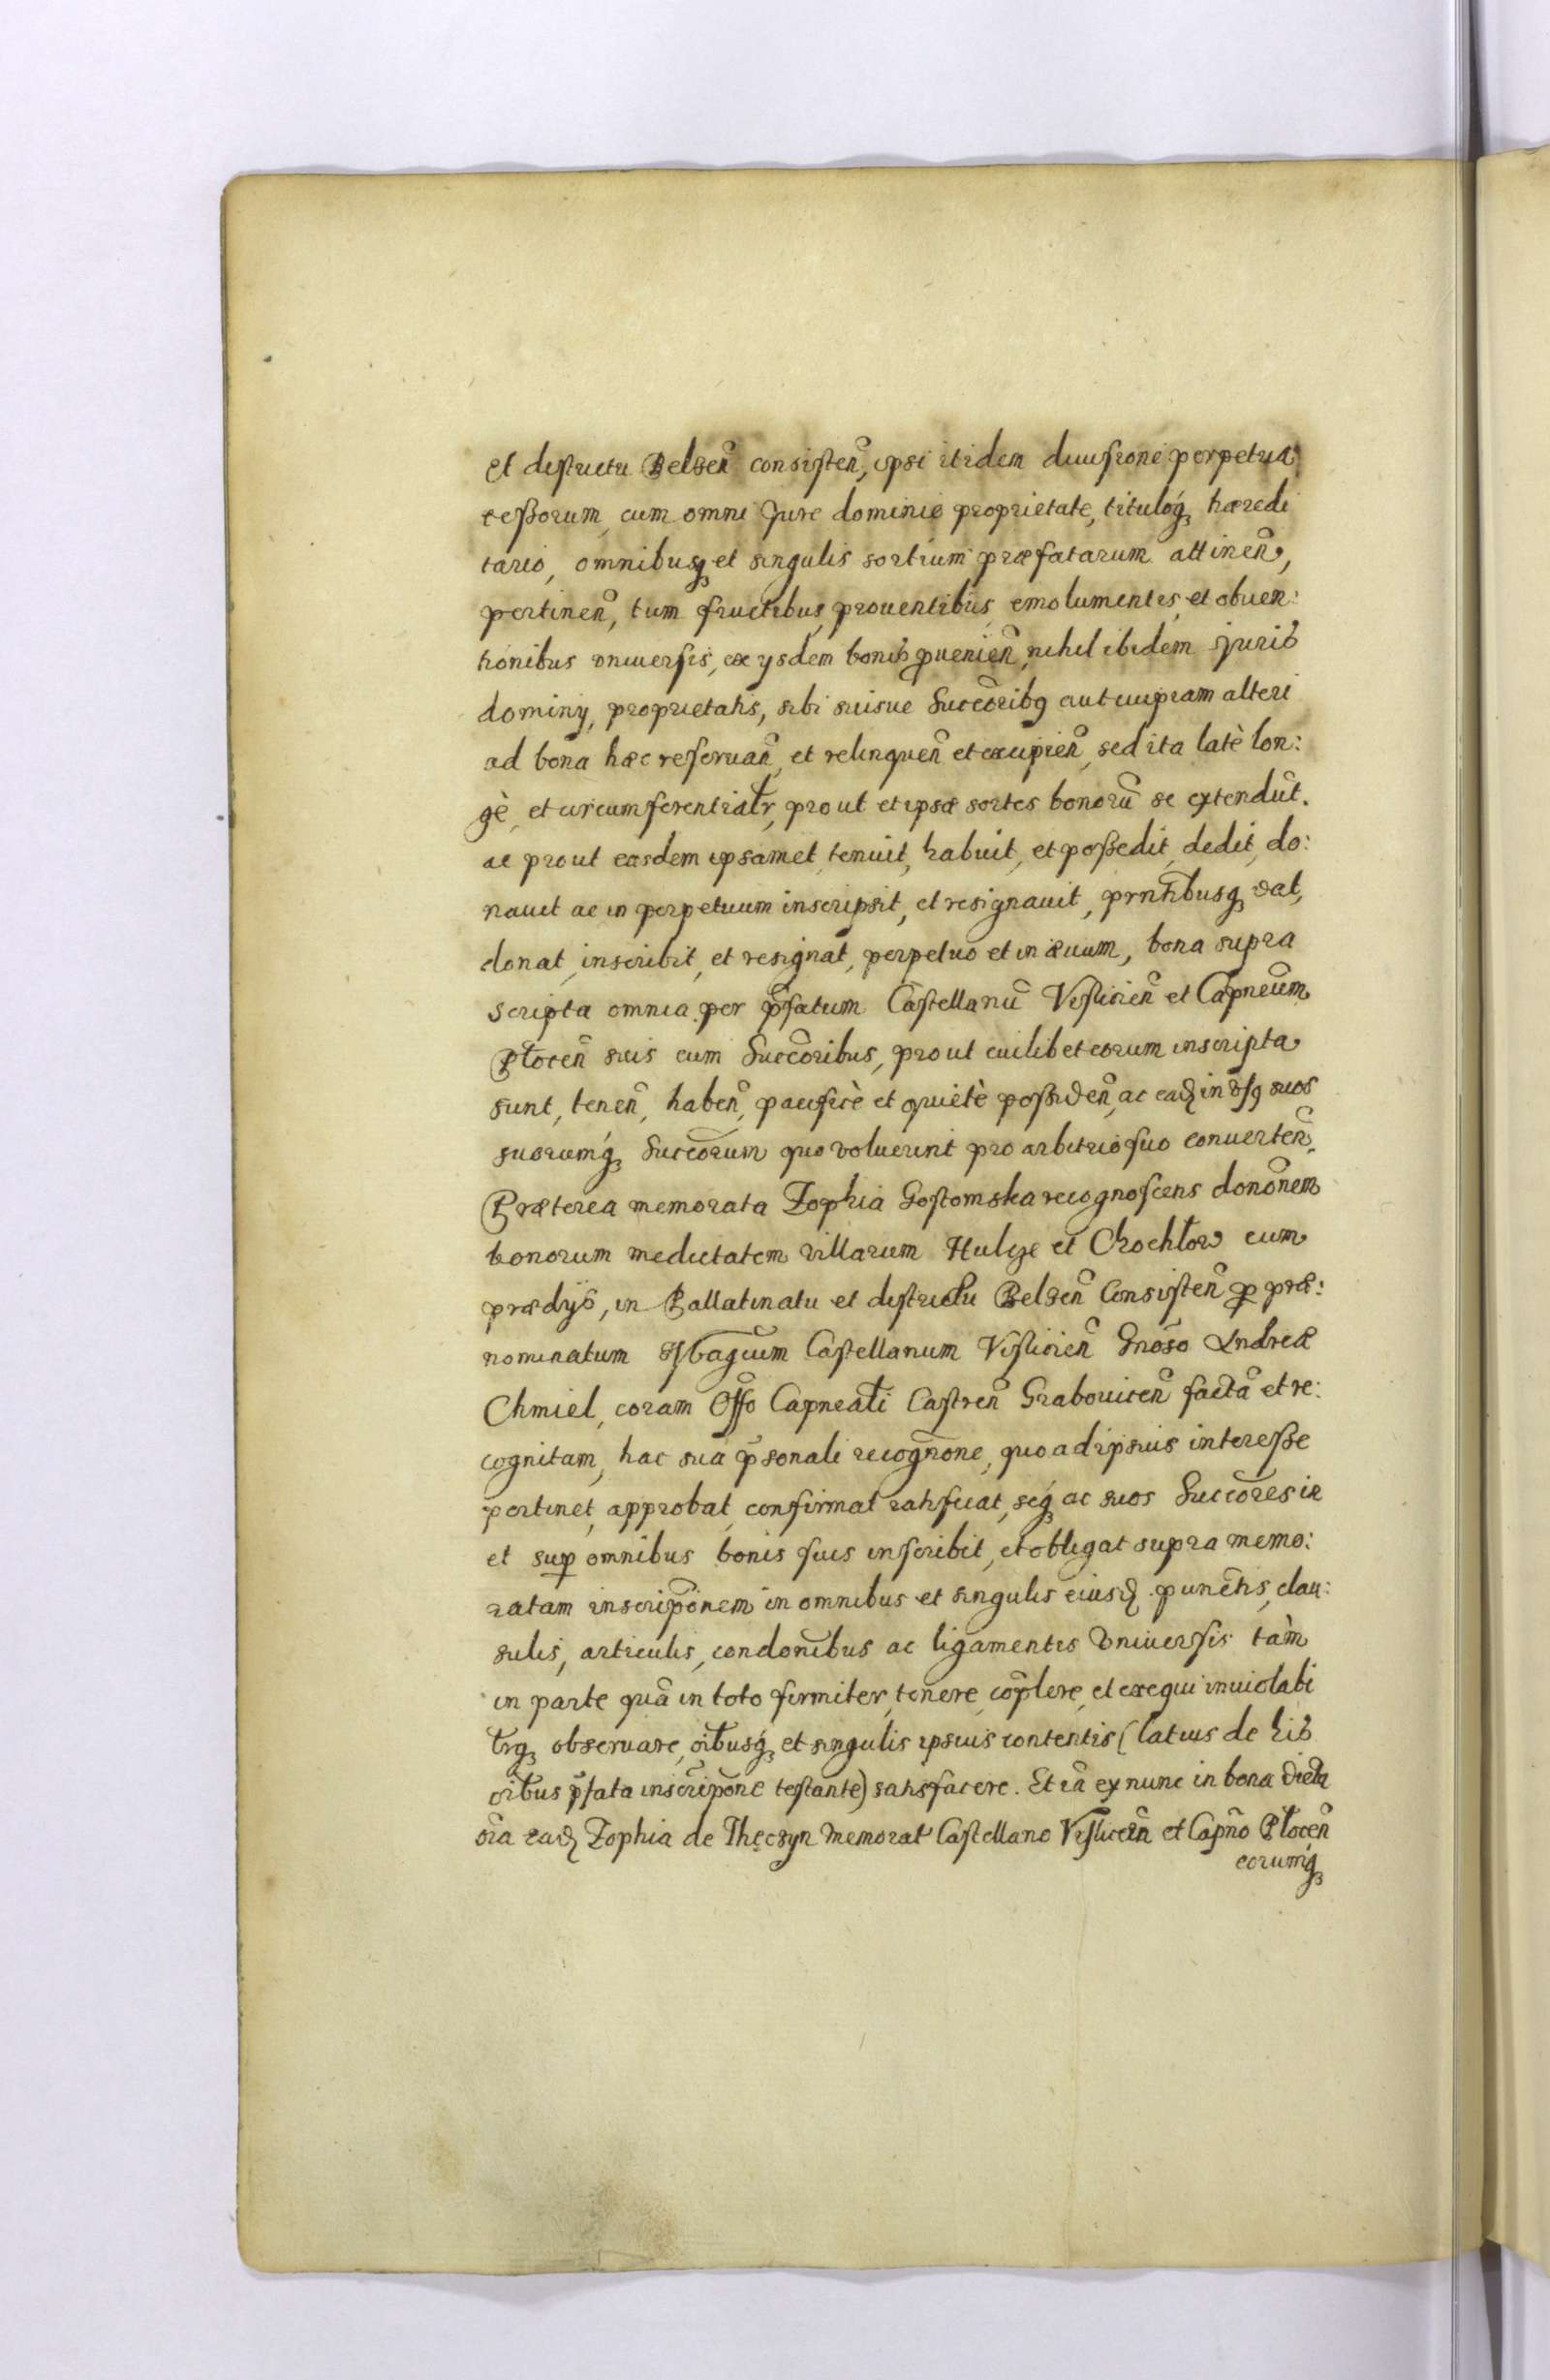 et districtu Belzen̄ consisten̄, ipsi itidem diuisione perpetua
cessorum, cum omni Jure dominio proprietate, tituloq́₃ hæredi
tario, omnibusq₃ et singulis sortium præfatarum attinen̄,
pertinen̄, tum fructibus, prouentibus, emolumentis, et obuen:
tionibus vniuersis, ex ysdem bonis ꝓuenien̄, nihil ibidem juris
dominÿ, proprietatis, sibi suisue Succōribꝰ aut cuipiam alteri
ad bona hæc reseruan̄, et relinquen̄ et excipien̄, sed ita latè lon:
gè, et circumferentialr̄, prout et ipsæ sortes bonorū se extendūt.
ac prout easdem ipsamet, tenuit, habuit, et possedit, dedit, do:
nauit ac in perpetuum inscripsit, et resignauit, prn̄tibusq₃ dat,
donat, inscribit, et resignat, perpetuo et in æuum, bona supra
scripta omnia per p̄fatum Castellanū Vislicien̄ et Capneūm
Plocen̄ suis cum Succōribus, prout cuilibet eorum inscripta
sunt, tenen̄, haben̄, pacificè et quietè possiden̄, ac ead̄ in vsꝰ suos
suorumq́₃ Succōrum quo voluerint pro arbitrio suo conuerten̄.
Præterea memorata Zophia Gostomska recognoscens donōnem
bonorum medietatem villarum Hulcze et Chochłow cum
prædÿs, in Pallatinatu et districtu Belzen̄ Consisten̄ ꝑ præ:
nominatum Magcūm Castellanum Vislicien̄ Gnōso Andreæ
Chmiel, coram Offō Capneāli Castren̄ Grabouicen̄ factā et re:
cognitam, hac sua p̄sonali recogn̄one, quo ad ipsius interesse
pertinet, approbat, confirmat ratificat, seq́₃ ac suos Succōres in
et suꝑ omnibus bonis suis inscribit, et obligat supra memo:
ratam inscripōnem in omnibus et singulis eiusd̄ punctis, clau:
sulis, articulis, condonībus ac ligamentis vniuersis tàm
in parte quā in toto firmiter, tenere, cōplere, et exequi inuiolabi
lr̄q₃ obseruare, oībusq́₃ et singulis ipsius contentis (latius de his
oībus p̄fata inscripōne testante) satisfacere. Et iā ex nunc in bona dicta
oīa ead̄ Zophia de Thęczyn Memorat̄ Castellano Vislicen̄ et Capn̄o Plocen̄
eorumq́₃